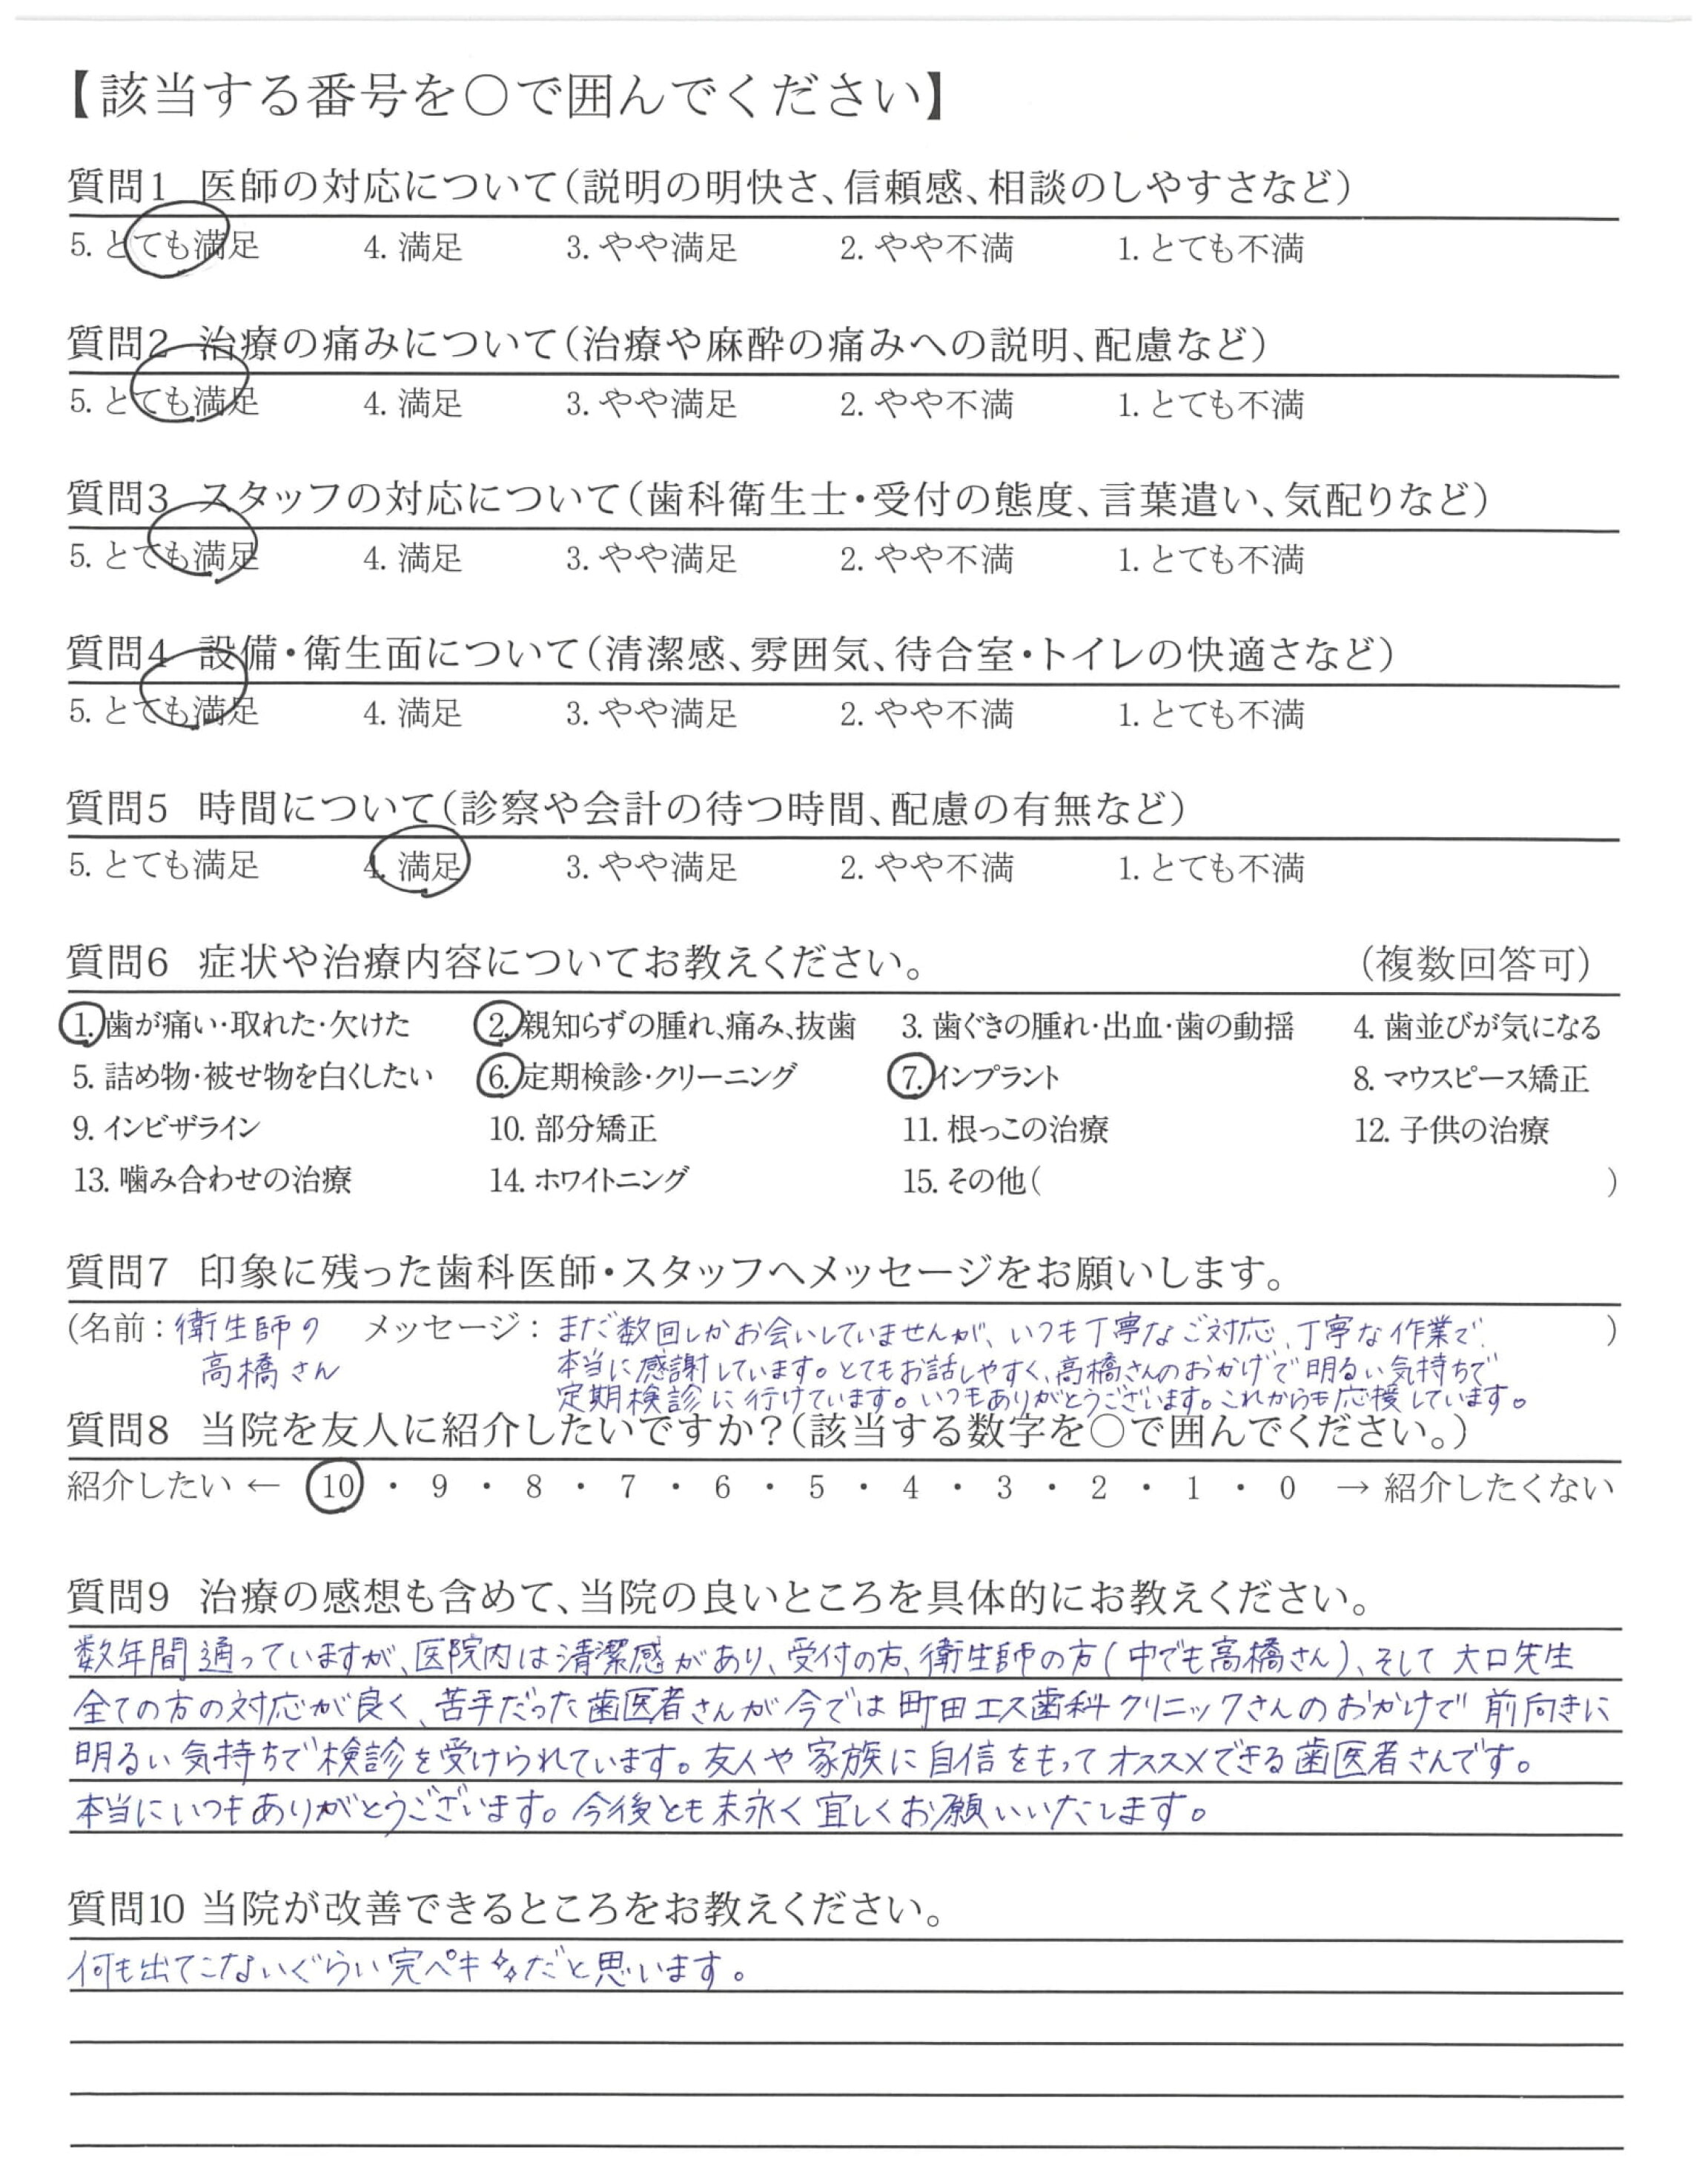 【該当する番号を〇で囲んでください】
質問1 医師の対応について(説明の明快さ、信頼感、相談のしやすさなど)
5. とても満足 4. 満足 3. やや満足 2. やや不満 1. とても不満
質問2 治療の痛みについて(治療や麻酔の痛みへの説明、配慮など)
5. とても満足 4. 満足 3. やや満足 2. やや不満 1. とても不満
質問3 スタッフの対応について(歯科衛生士・受付の態度、言葉遣い、気配りなど)
5. とても満足 4. 満足 3. やや満足 2. やや不満 1. とても不満
質問4 設備・衛生面について(清潔感、雰囲気、待合室・トイレの快適さなど)
5. とても満足 4. 満足 3. やや満足 2. やや不満 1. とても不満
質問5 時間について(診察や会計の待つ時間、配慮の有無など)
5. とても満足 4. 満足 3. やや満足 2. やや不満 1. とても不満
質問6 症状や治療内容についてお教えください。 (複数回答可)
1. 歯が痛い・取れた・欠けた 2. 親知らずの腫れ、痛み、抜歯 3. 歯ぐきの腫れ・出血・歯の動揺 4. 歯並びが気になる
5. 詰め物・被せ物を白くしたい 6. 定期検診・クリーニング 7. インプラント 8. マウスピース矯正
9. インビザライン 10. 部分矯正 11. 根っこの治療 12. 子供の治療
13. 噛み合わせの治療 14. ホワイトニング 15. その他( )
質問7 印象に残った歯科医師・スタッフへメッセージをお願いします。
(名前：衛生師の メッセージ：まだ数回しかお会いしていませんが、いつも丁寧なご対応、丁寧な作業で )
高橋さん 本当に感謝しています。とてもお話しやすく、高橋さんのおかげで明るい気持ちで
定期検診に行けています。いつもありがとうございます。これからも応援しています。
質問8 当院を友人に紹介したいですか？(該当する数字を〇で囲んでください。)
紹介したい ← 10 ・ 9 ・ 8 ・ 7 ・ 6 ・ 5 ・ 4 ・ 3 ・ 2 ・ 1 ・ 0 → 紹介したくない
質問9 治療の感想も含めて、当院の良いところを具体的にお教えください。
数年間通っていますが、医院内は清潔感があり、受付の方、衛生師の方(中でも高橋さん)、そして大口先生
全ての方の対応が良く、苦手だった歯医者さんが今では町田エス歯科クリニックさんのおかげで前向きに
明るい気持ちで検診を受けられています。友人や家族に自信をもってオススメできる歯医者さんです。
本当にいつもありがとうございます。今後とも末永く宜しくお願いいたします。
質問10 当院が改善できるところをお教えください。
何も出てこないぐらい完ペキだと思います。